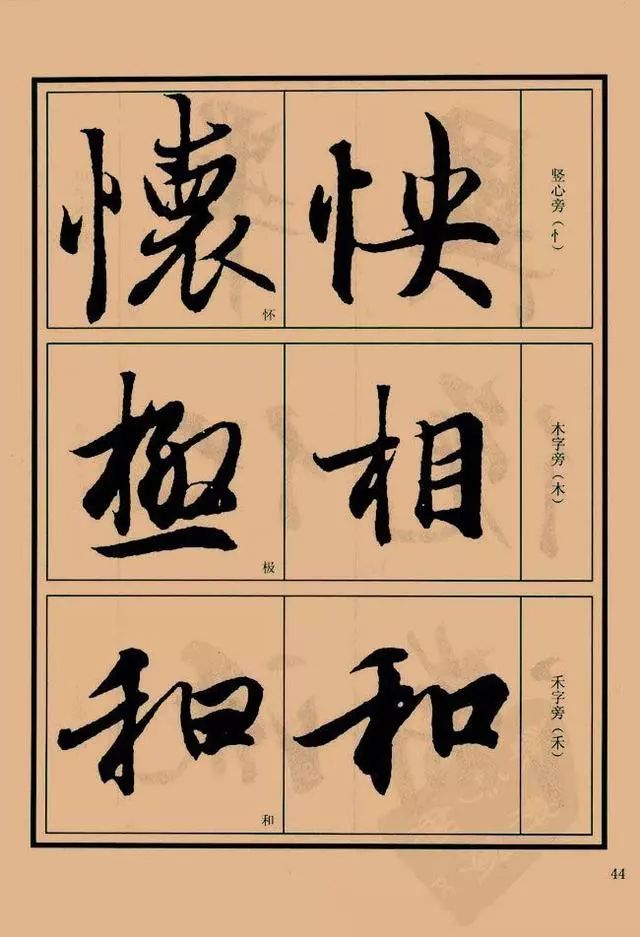 竖心旁（忄）
怏
懷
怀
木字旁（木）
相
極
极
禾字旁（禾）
和
和
和
44